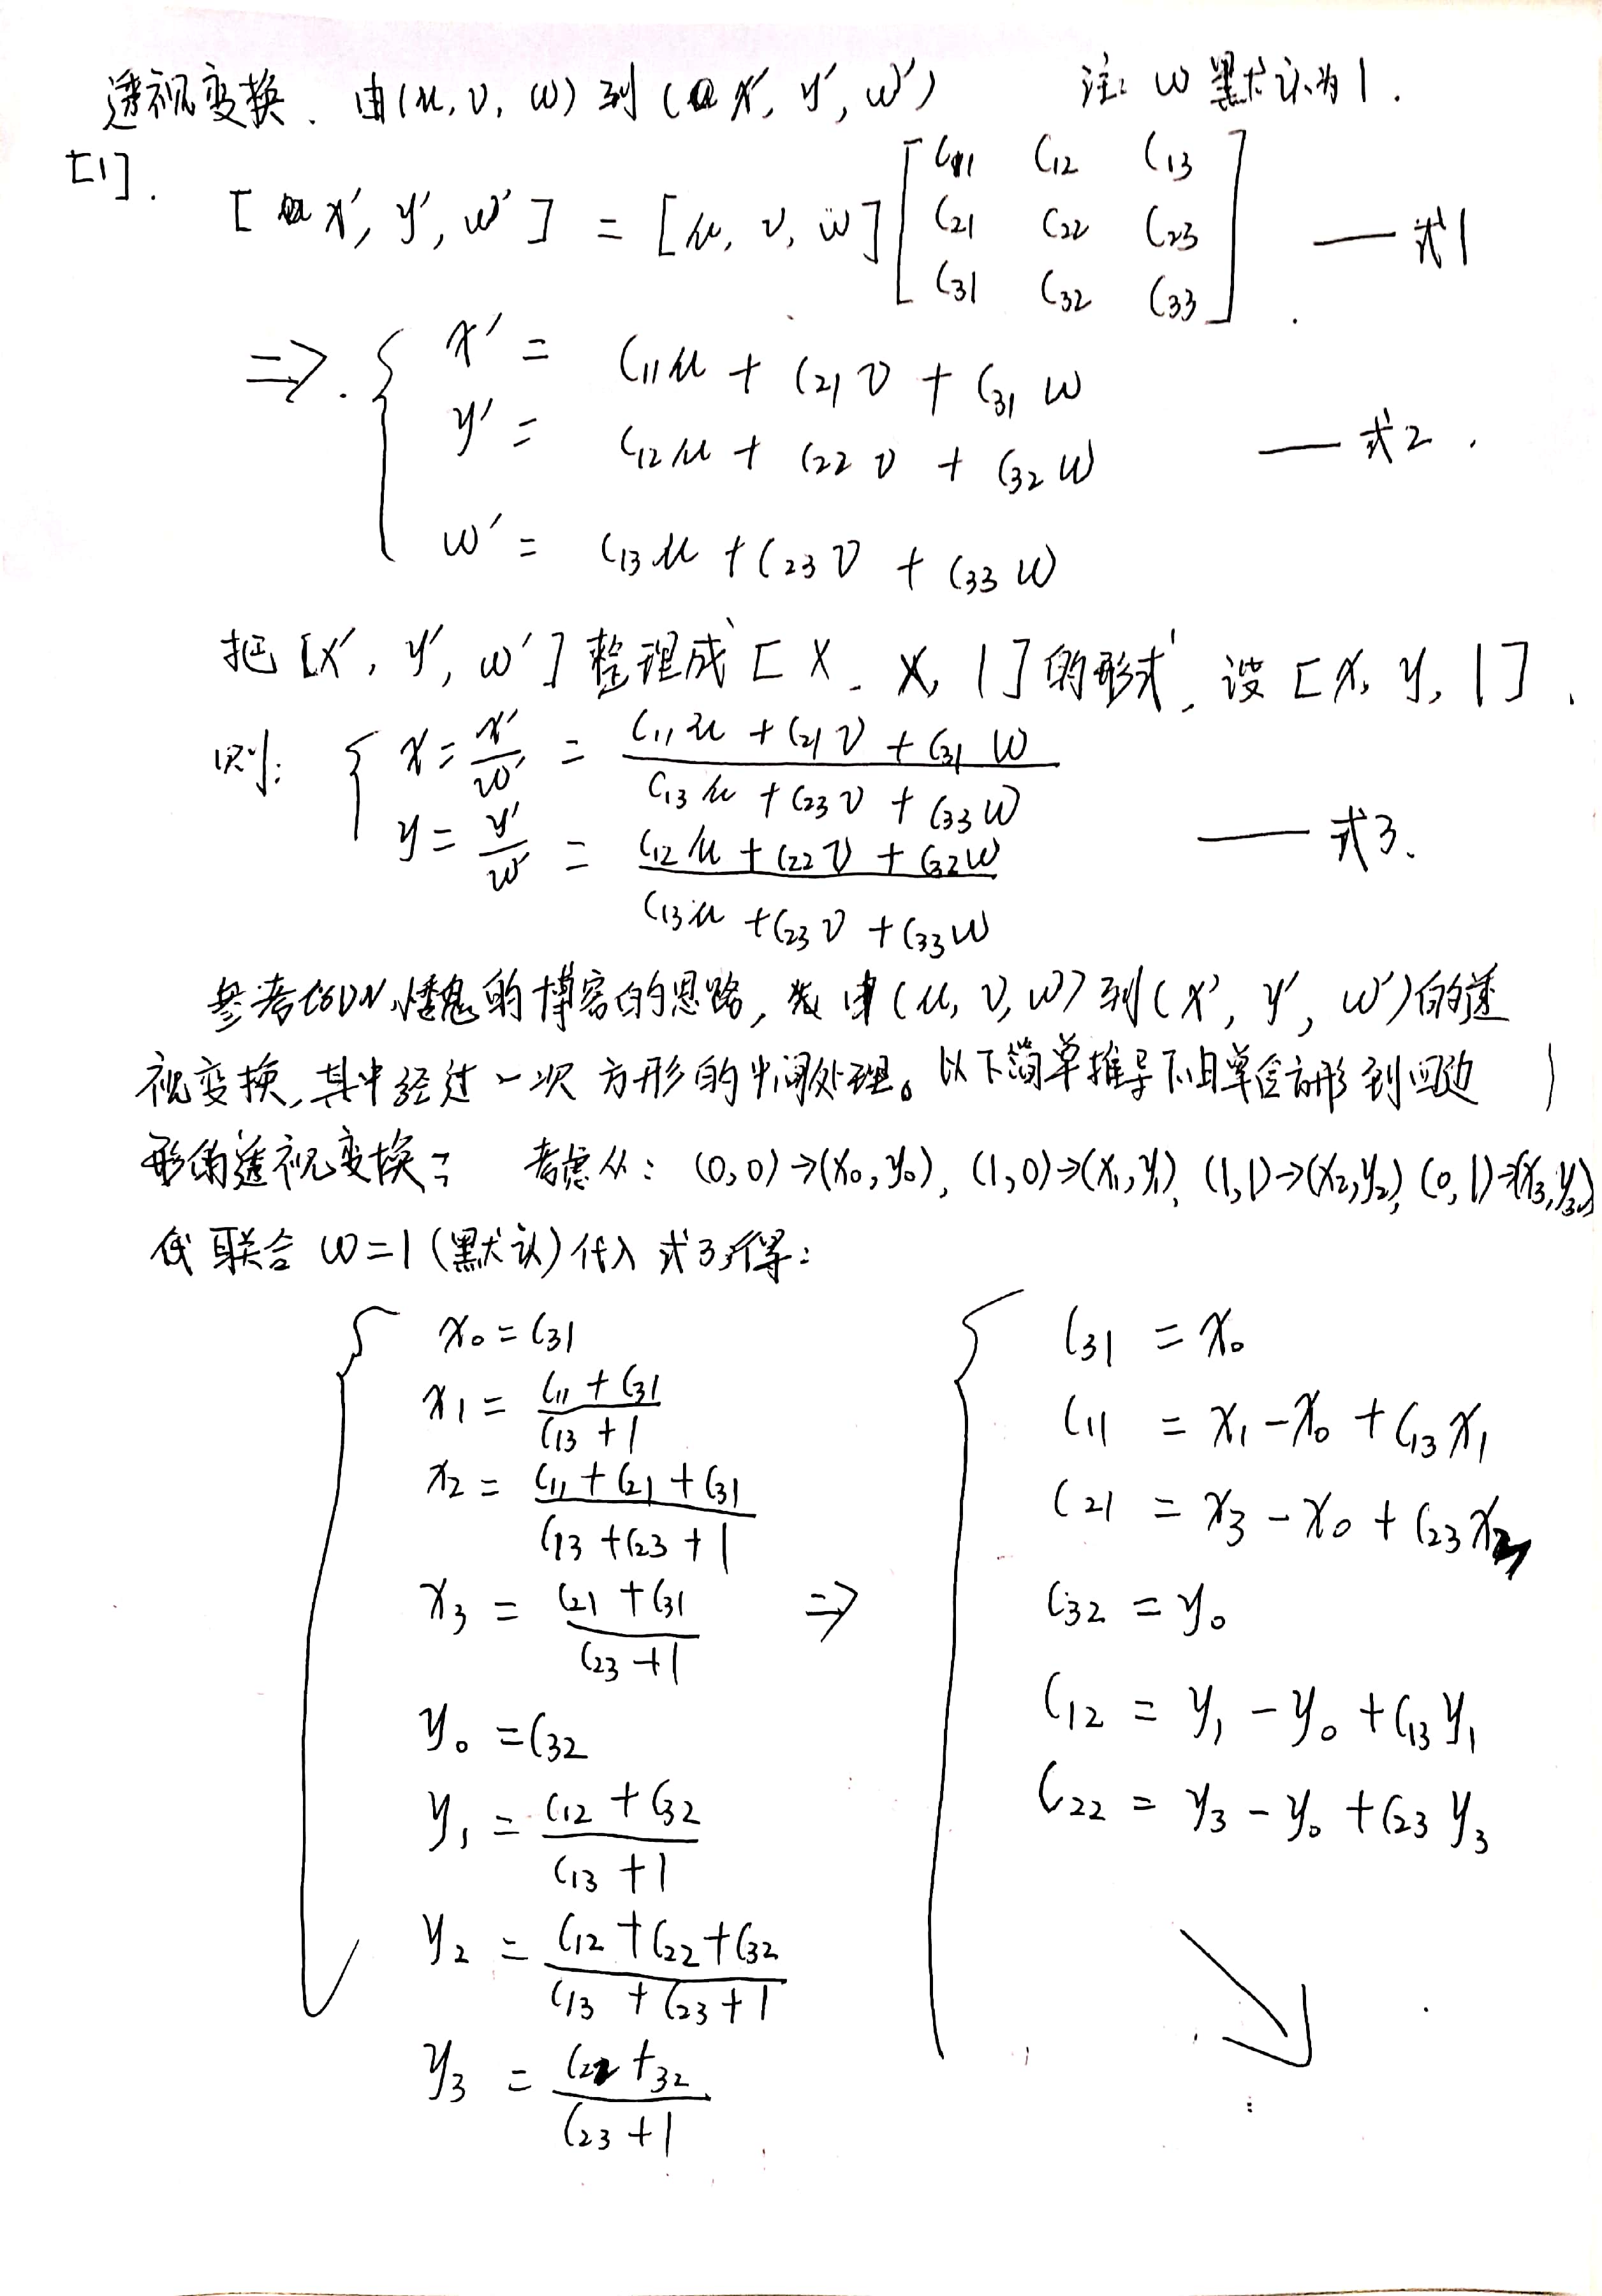 透视变换. 由(u, v, w) 到 (x′, y′, w′) 注: w 默认为1.
[1]. [x′, y′, w′] = [u, v, w] [C11 C12 C13
C21 C22 C23
C31 C32 C33] —— 式1
⇒ { x′ = C11u + C21v + C31w
y′ = C12u + C22v + C32w —— 式2.
w′ = C13u + C23v + C33w
把 [x′, y′, w′] 整理成 [X, X, 1] 的形式, 设 [x, y, 1].
则: { x = x′/w′ = (C11u + C21v + C31w) / (C13u + C23v + C33w)
y = y′/w′ = (C12u + C22v + C32w) / (C13u + C23v + C33w) —— 式3.
参考CSDN 的博客的思路, 由(u, v, w)到(x′, y′, w′)的透
视变换, 其中经过一次方形的中间处理。以下简单推导下由单位方形到四边
形的透视变换: 考虑从: (0,0)→(x0,y0), (1,0)→(x1,y1), (1,1)→(x2,y2), (0,1)→(x3,y3)
联合 w=1 (默认) 代入 式3 得:
{ x0 = C31
x1 = (C11 + C31) / (C13 + 1)
x2 = (C11 + C21 + C31) / (C13 + C23 + 1)
x3 = (C21 + C31) / (C23 + 1)
y0 = C32
y1 = (C12 + C32) / (C13 + 1)
y2 = (C12 + C22 + C32) / (C13 + C23 + 1)
y3 = (C22 + 32) / (C23 + 1)
⇒ { C31 = x0
C11 = x1 - x0 + C13x1
C21 = x3 - x0 + C23x3
C32 = y0
C12 = y1 - y0 + C13y1
C22 = y3 - y0 + C23y3